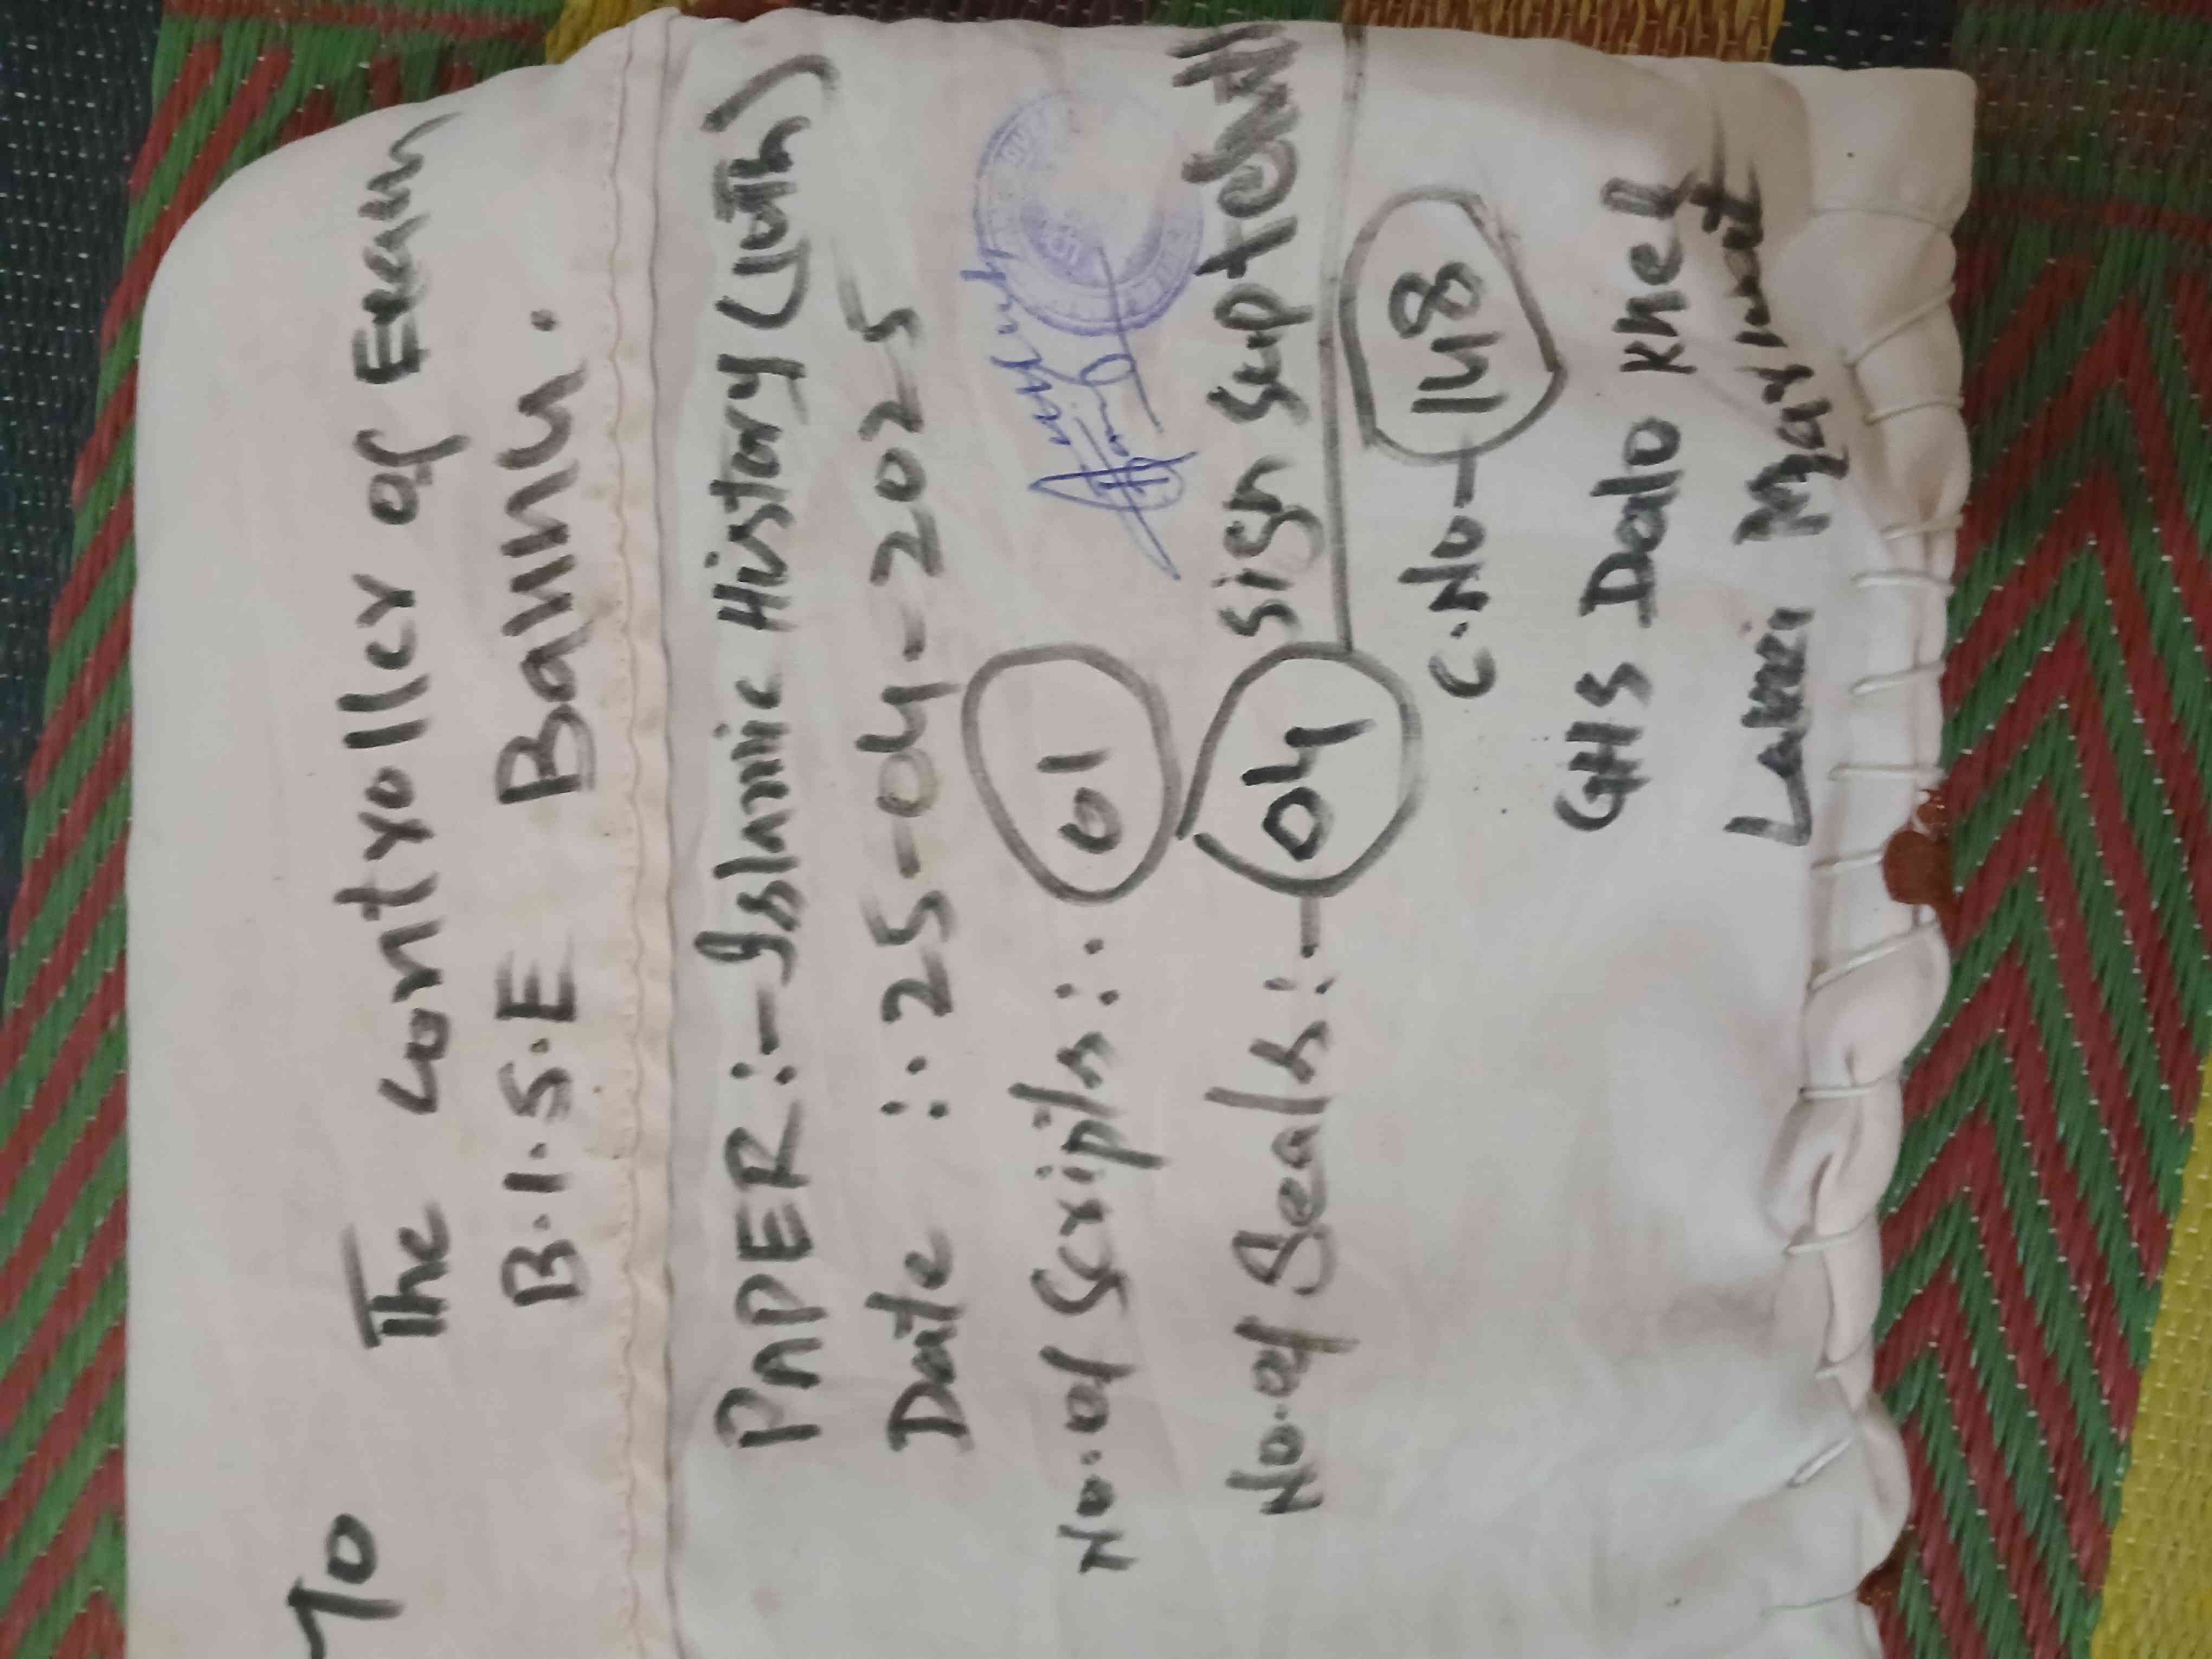 To
The Controller of Exam
B.I.S.E Bannu.
PAPER:- Islamic History (10th)
Date :. 25-04-2025
No. of Scripts :. 01
No. of Seals :- 04
Sign Suptdntt
C.No- 148
GHS Dalo Khel
Lakki Marwat